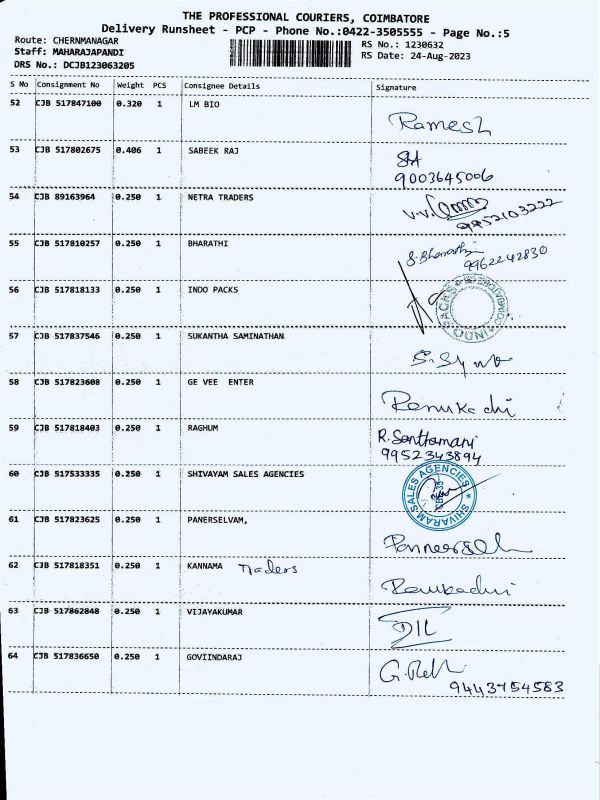 THE PROFESSIONAL COURIERS, COIMBATORE
Delivery Runsheet - PCP - Phone No.:0422-3505555 - Page No.:5
Route: CHERNMANAGAR
RS No.: 1230632
Staff: MAHARAJAPANDI
RS Date: 24-Aug-2023
DRS No.: DCJB123063205
S No Consignment No Weight PCS Consignee Details Signature
52 CJB 517847100 0.320 1 LM BIO
Ramesh
53 CJB 517802675 0.406 1 SABEEK RAJ
9003645006
54 CJB 89163964 0.250 1 NETRA TRADERS
V.V.
9952103222
55 CJB 517810257 0.250 1 BHARATHI
S.Bharathi
9962242830
56 CJB 517818133 0.250 1 INDO PACKS
57 CJB 517837546 0.250 1 SUKANTHA SAMINATHAN
58 CJB 517823608 0.250 1 GE VEE ENTER
Renukachi
59 CJB 517818403 0.250 1 RAGHUM
R. Santhamani
9952343894
60 CJB 517533335 0.250 1 SHIVAYAM SALES AGENCIES
SHIVARAM SALES AGENCIES
61 CJB 517823625 0.250 1 PANERSELVAM,
62 CJB 517818351 0.250 1 KANNAMA Traders
63 CJB 517862848 0.250 1 VIJAYAKUMAR
64 CJB 517836650 0.250 1 GOVIINDARAJ
9443754583